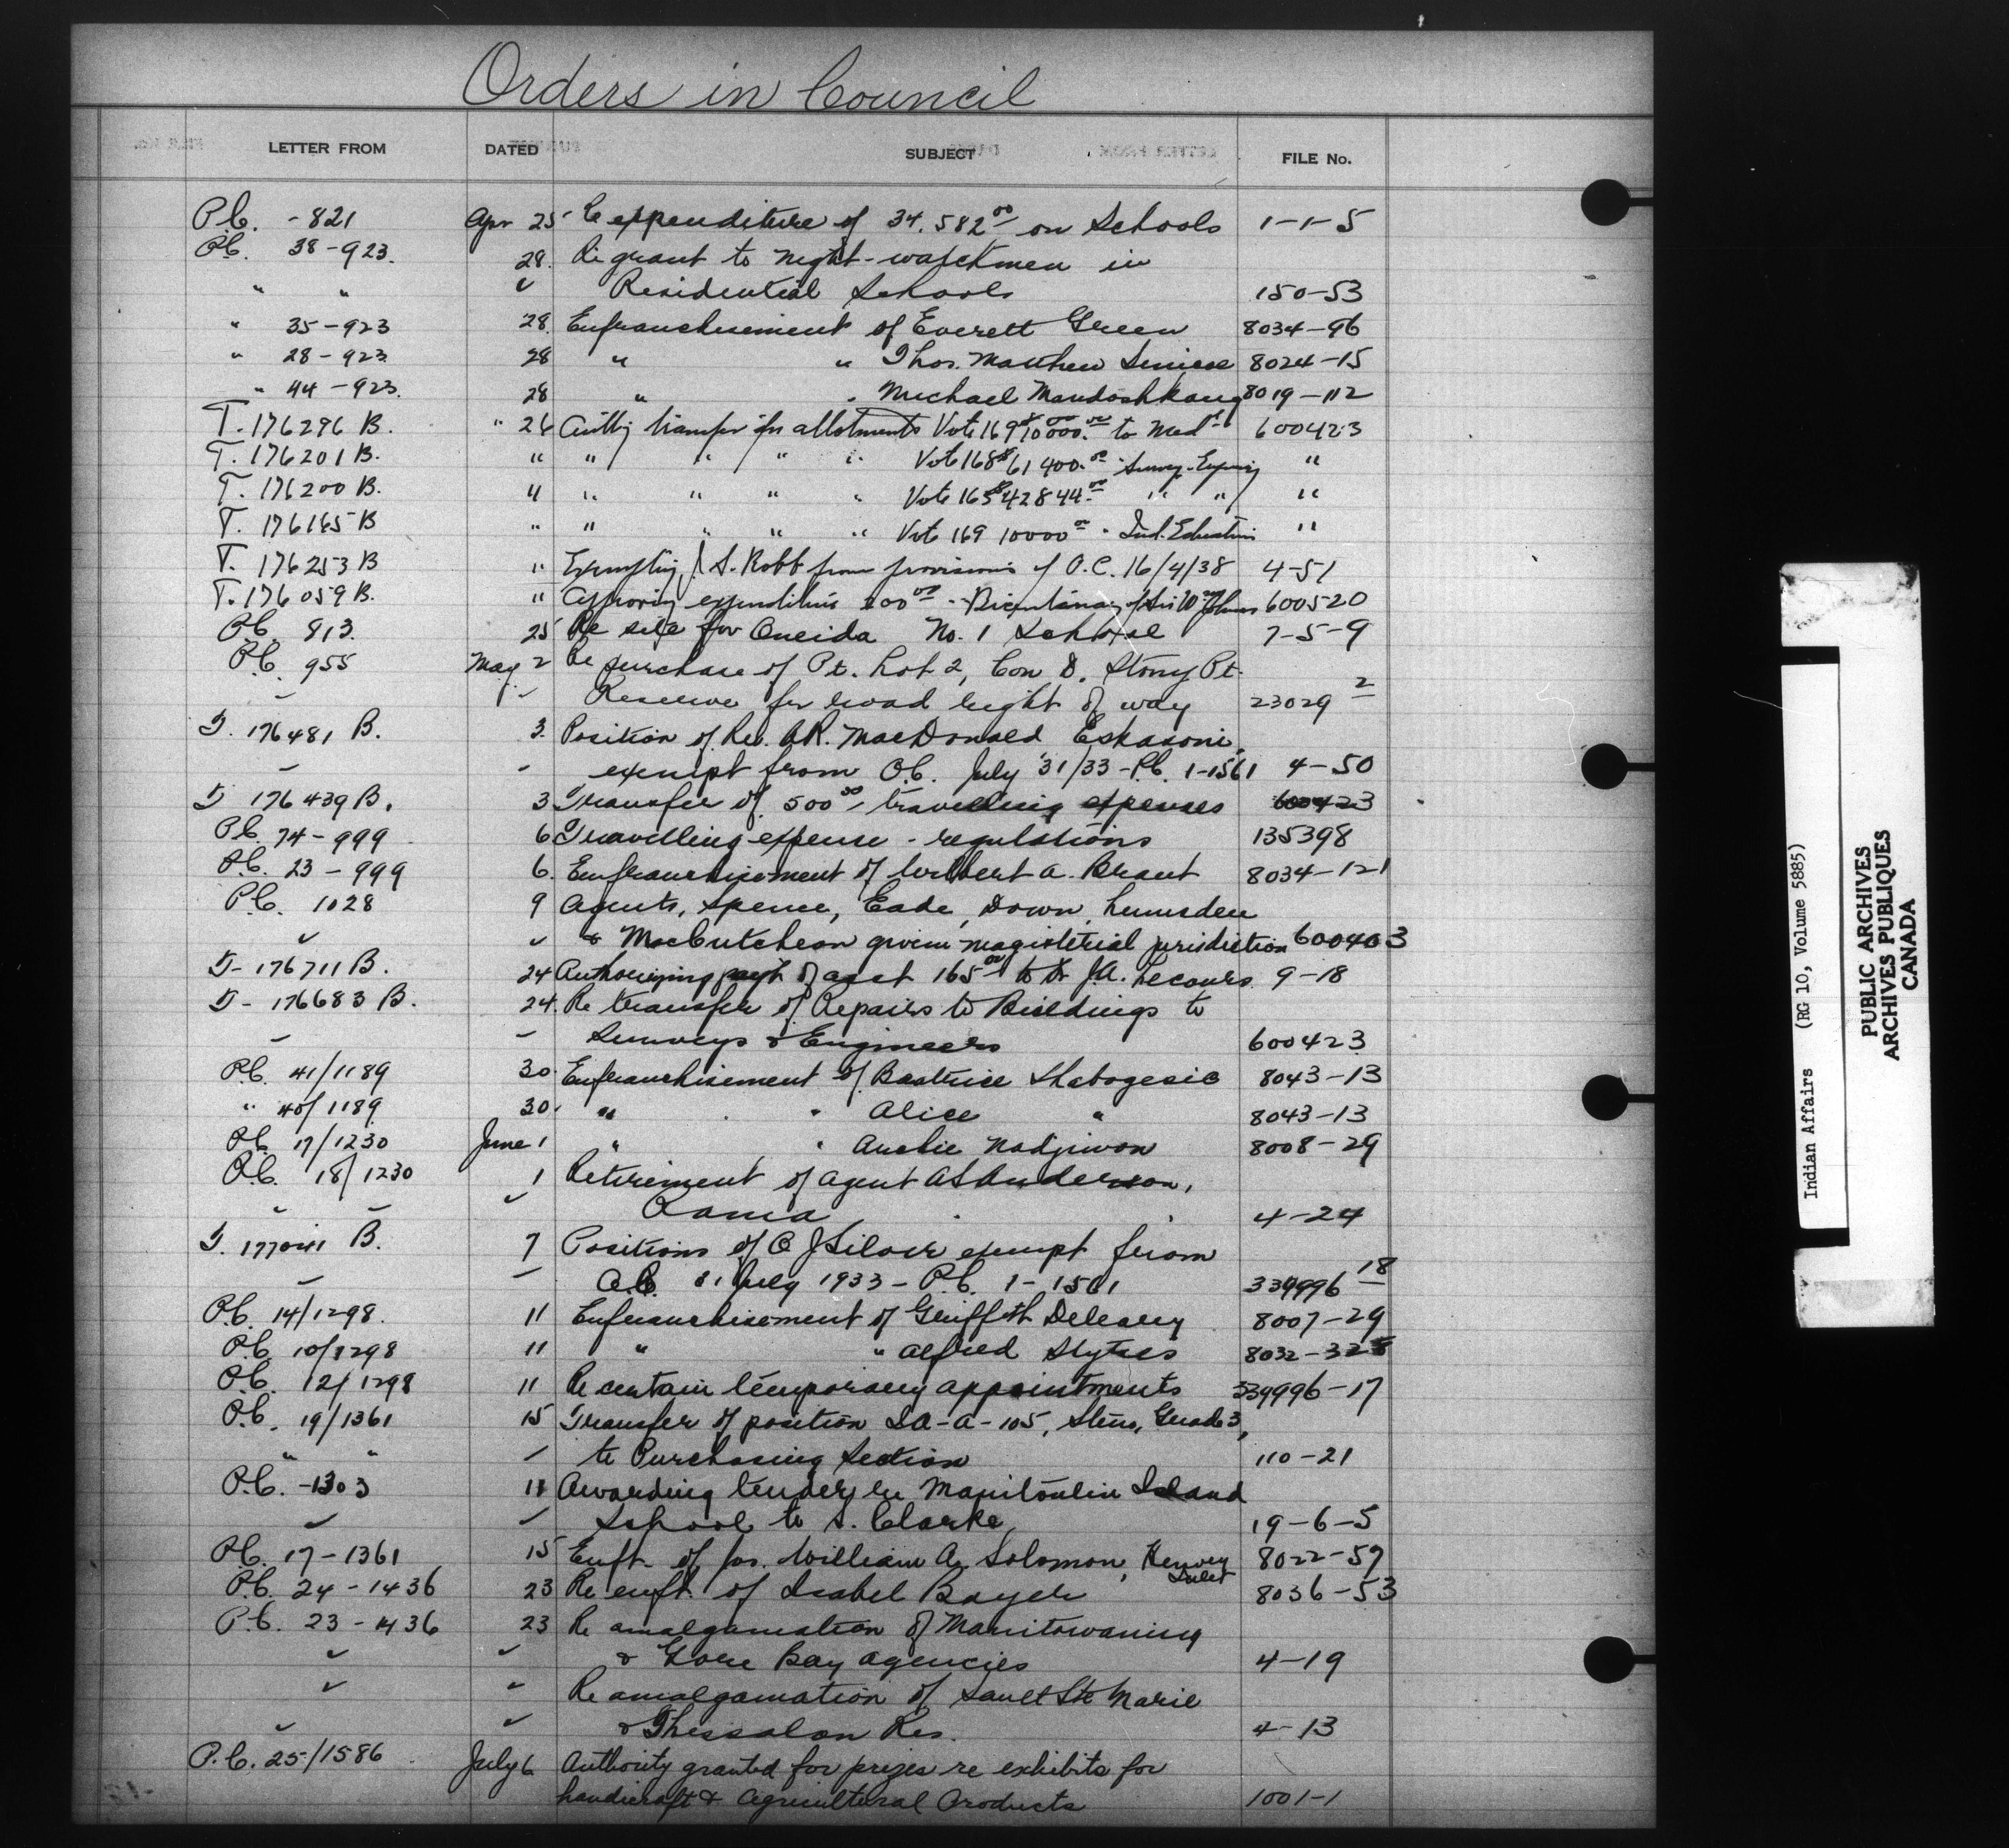 Orders in Council
LETTER FROM DATED SUBJECT FILE No.
P.C. - 821 Apr 25 Re expenditure of 34.582 00 on Schools 1-1-5
P.C. 38-923. 28. Re grant to night-watchmen in
" " ✓ Residential Schools 150-53
" 35-923 28. Enfranchisement of Everett Green 8034-96
" 28-923 28 " " Thos. Matthew 8024-15
" 44-923. 28 " " Michael Mandoshkang 8019-112
T. 176296 B. " 26 transfer allotments Vote 169 $10000.00 to Med'l 600423
T. 176201 B. " " " " " Vote 168 $61400.00 " "
T. 176200 B. " " " " " Vote 165 $42844.00 " " "
T. 176165 B " " " " " Vote 169 10000 00 " Ind. Education "
T. 176253 B " Exempting J. S. Robb from provisions of O.C. 16/4/38 4-51
T. 176059 B. " Approving expenditure 200 00 - Bicentenary of Sir Wm Johns 600520
P.C. 813. 25 Re site for Oneida No. 1 School 7-5-9
P.C. 955 May 2 Re purchase of Pt. Lot 2, Con D. Stony Pt.
✓ ✓ Reserve for road right of way 23029 2
T. 176481 B. 3. Position of Rev. A.R. MacDonald Eskasoni,
✓ exempt from O.C. July 31/33 - P.C. 1-1561 4-50
T 176439 B. 3 Transfer of 500 00 travelling expenses 600423
P.C. 74-999 6 Travelling expense - regulations 135398
P.C. 23-999 6. Enfranchisement of Wilbert A. Brant 8034-121
P.C. 1028 9 Agents, Spence, Eade, Down, Lumsden
✓ ✓ & MacCutcheon given magisterial jurisdiction 600403
T- 176711 B. 24 Authorizing pay't of acct 165 00 to Dr J.A. Lecours 9-18
T- 176683 B. 24. Re transfer of Repairs to Buildings to
✓ Surveys & Engineers 600423
P.C. 41/1189 30. Enfranchisement of Beatrice Shabogesic 8043-13
" 40/1189 30. " " Alice " 8043-13
P.C. 17/1230 June 1 " " Nadjiwon 8008-29
P.C. 18/1230 1 Retirement of Agent A S Anderson,
✓ ✓ ✓ Rama 4-24
T. 177041 B. 7 Positions of C J exempt from
O.C. 31 July 1933 - P.C. 1-1561 339996 18
P.C. 14/1298. 11 Enfranchisement of Griffith Deleary 8007-29
P.C. 10/1298 11 " " Alfred 8032-
P.C. 12/1298 11 Re certain temporary appointments 339996-17
P.C. 19/1361 15 Transfer of position IA-A-105, Steno, Grade 3,
" " ✓ to Purchasing Section 110-21
P.C. -1303 11 Awarding tender re Manitoulin Island
✓ ✓ School to S. Clarke, 19-6-5
P.C. 17-1361 15 Enft. of Jos. William A. Solomon, Henvey Inlet 8022-57
P.C. 24-1436 23 Re enft. of Isabel Bayer 8036-53
P.C. 23-1436 23 Re amalgamation of Manitowaning
✓ ✓ & Gore Bay agencies 4-19
✓ ✓ Re amalgamation of Sault Ste Marie
✓ ✓ & Thessalon Res. 4-13
P.C. 25/1586 July 6 Authority granted for prizes re exhibits for
handicraft & Agricultural Products 1001-1
Indian Affairs (RG 10, Volume 5885)
PUBLIC ARCHIVES
ARCHIVES PUBLIQUES
CANADA